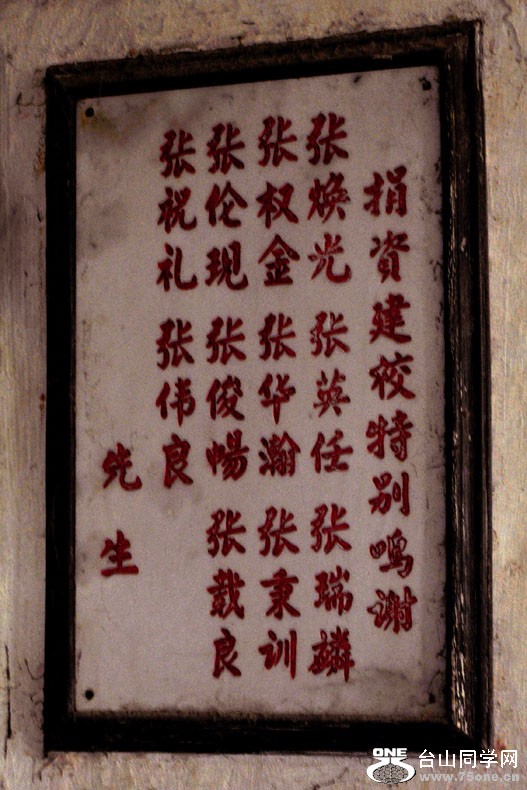 捐資建校特别鸣谢
张焕光 张英任 张瑞麟
张权金 张华瀚 张秉训
张伦现 张俊畅 张载良
张祝礼 张伟良
先生
ONE 台山同学网
www.75one.cn